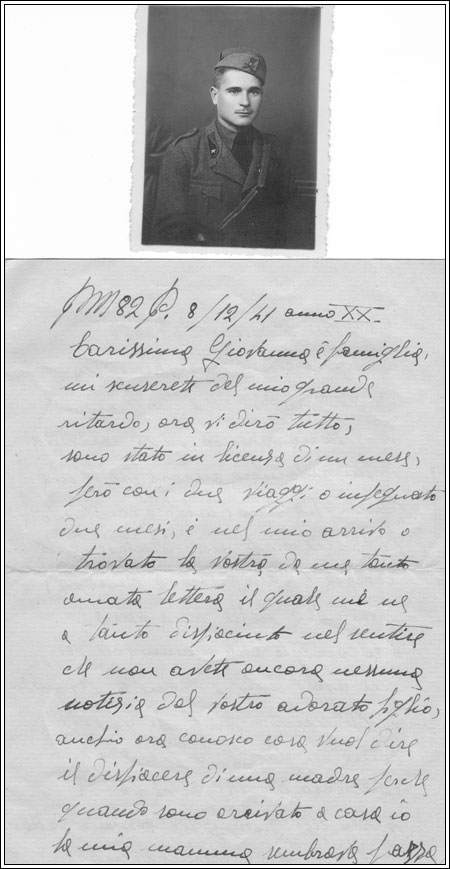 PM 82 P. 8/12/41 anno XX.
Carissima Giovanna é famiglia,
mi scuserete del mio grande
ritardo, ora vi diró tutto,
sono stato in licenza di un mese,
peró con i due viaggi o inpeguato
due mesi, é nel mio arrivo o
trovato la vostra da me tanto
amata lettera il quale mi ne
a tanto dispiaciuto nel sentire
che non avete ancora nessuna
notizia del vostro adorato figlio,
anchio ora conosco cosa vuol dire
il dispiacere di una madre perche
quando sono arrivato a casa io
la mia mamma sembrava pazza